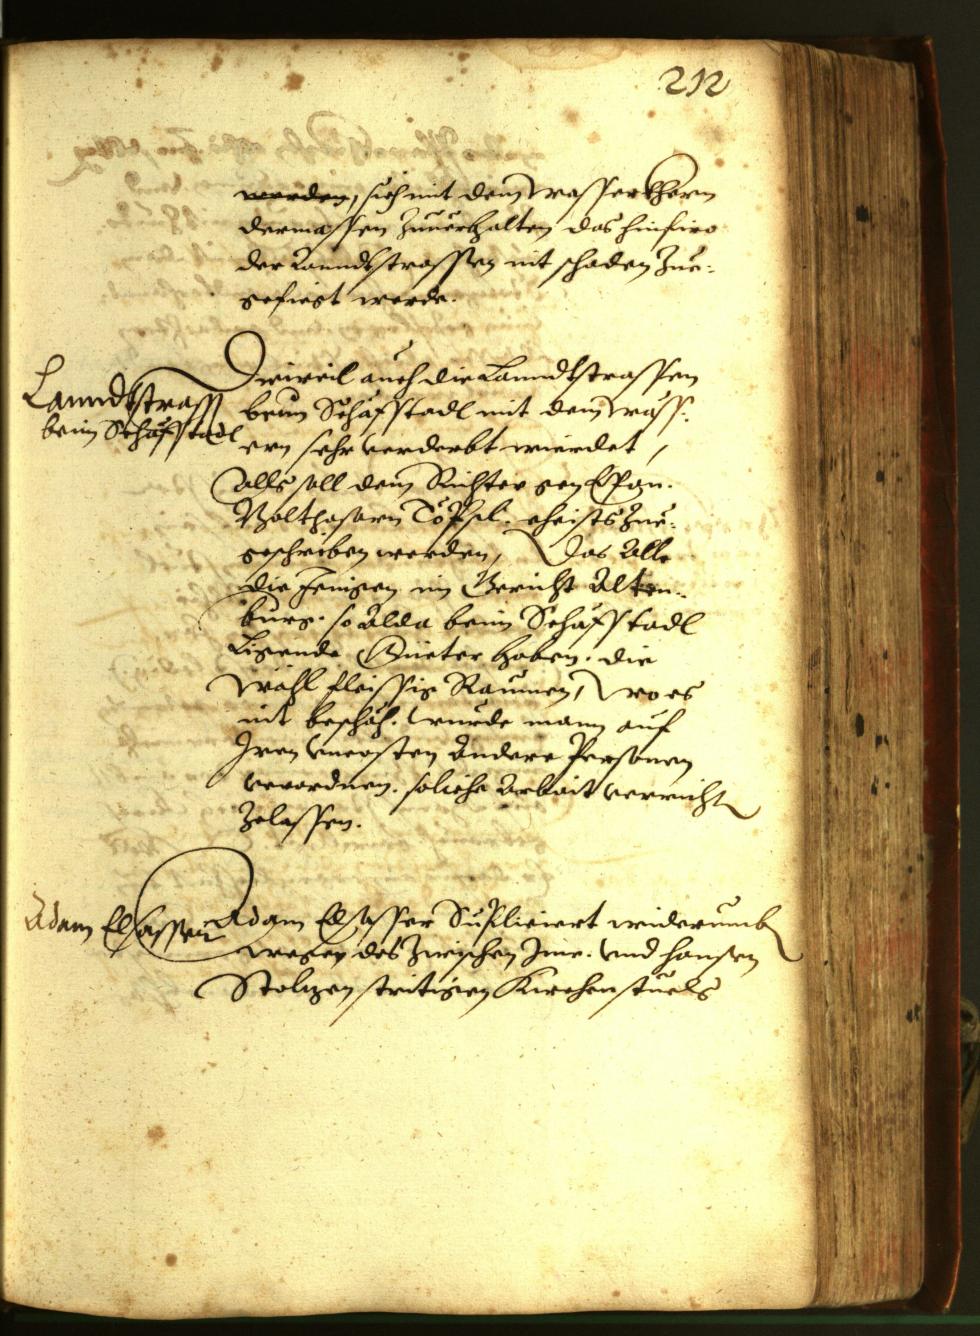 212
werden, sich mit dem Wasserkhern
dermassen zuuerhalten das hinfiro
der Lanndtstrassen nit schaden zue-
gefiegt werde.
Lanndtstrass
beim Schäfstadl
Dieweil auch die Lanndtstrassen
beim Schäfstadl mit dem Wäss-
ern sehr verderbt wierdet,
alls soll dem Richter gen Epan.
Balthasarn Töpsl. eheists zue-
geschriben werden, Das Alle
die Jenigen im Gericht Alten-
burg. so Alda beim Schäfstadl
Ligende Güeter haben. die
Wähl fleissig Raumen, wo es
nit beschäh. wurde mann auf
Iren Uncosten Andere Personen
verordnen. soliche Arbeit verricht
zelassen.
Adam Elsasser
Adam Elsasser Supliciert widerumb
wegen des zwischen Ime. und hansen
Stolzen stritigen Kirchenstuels